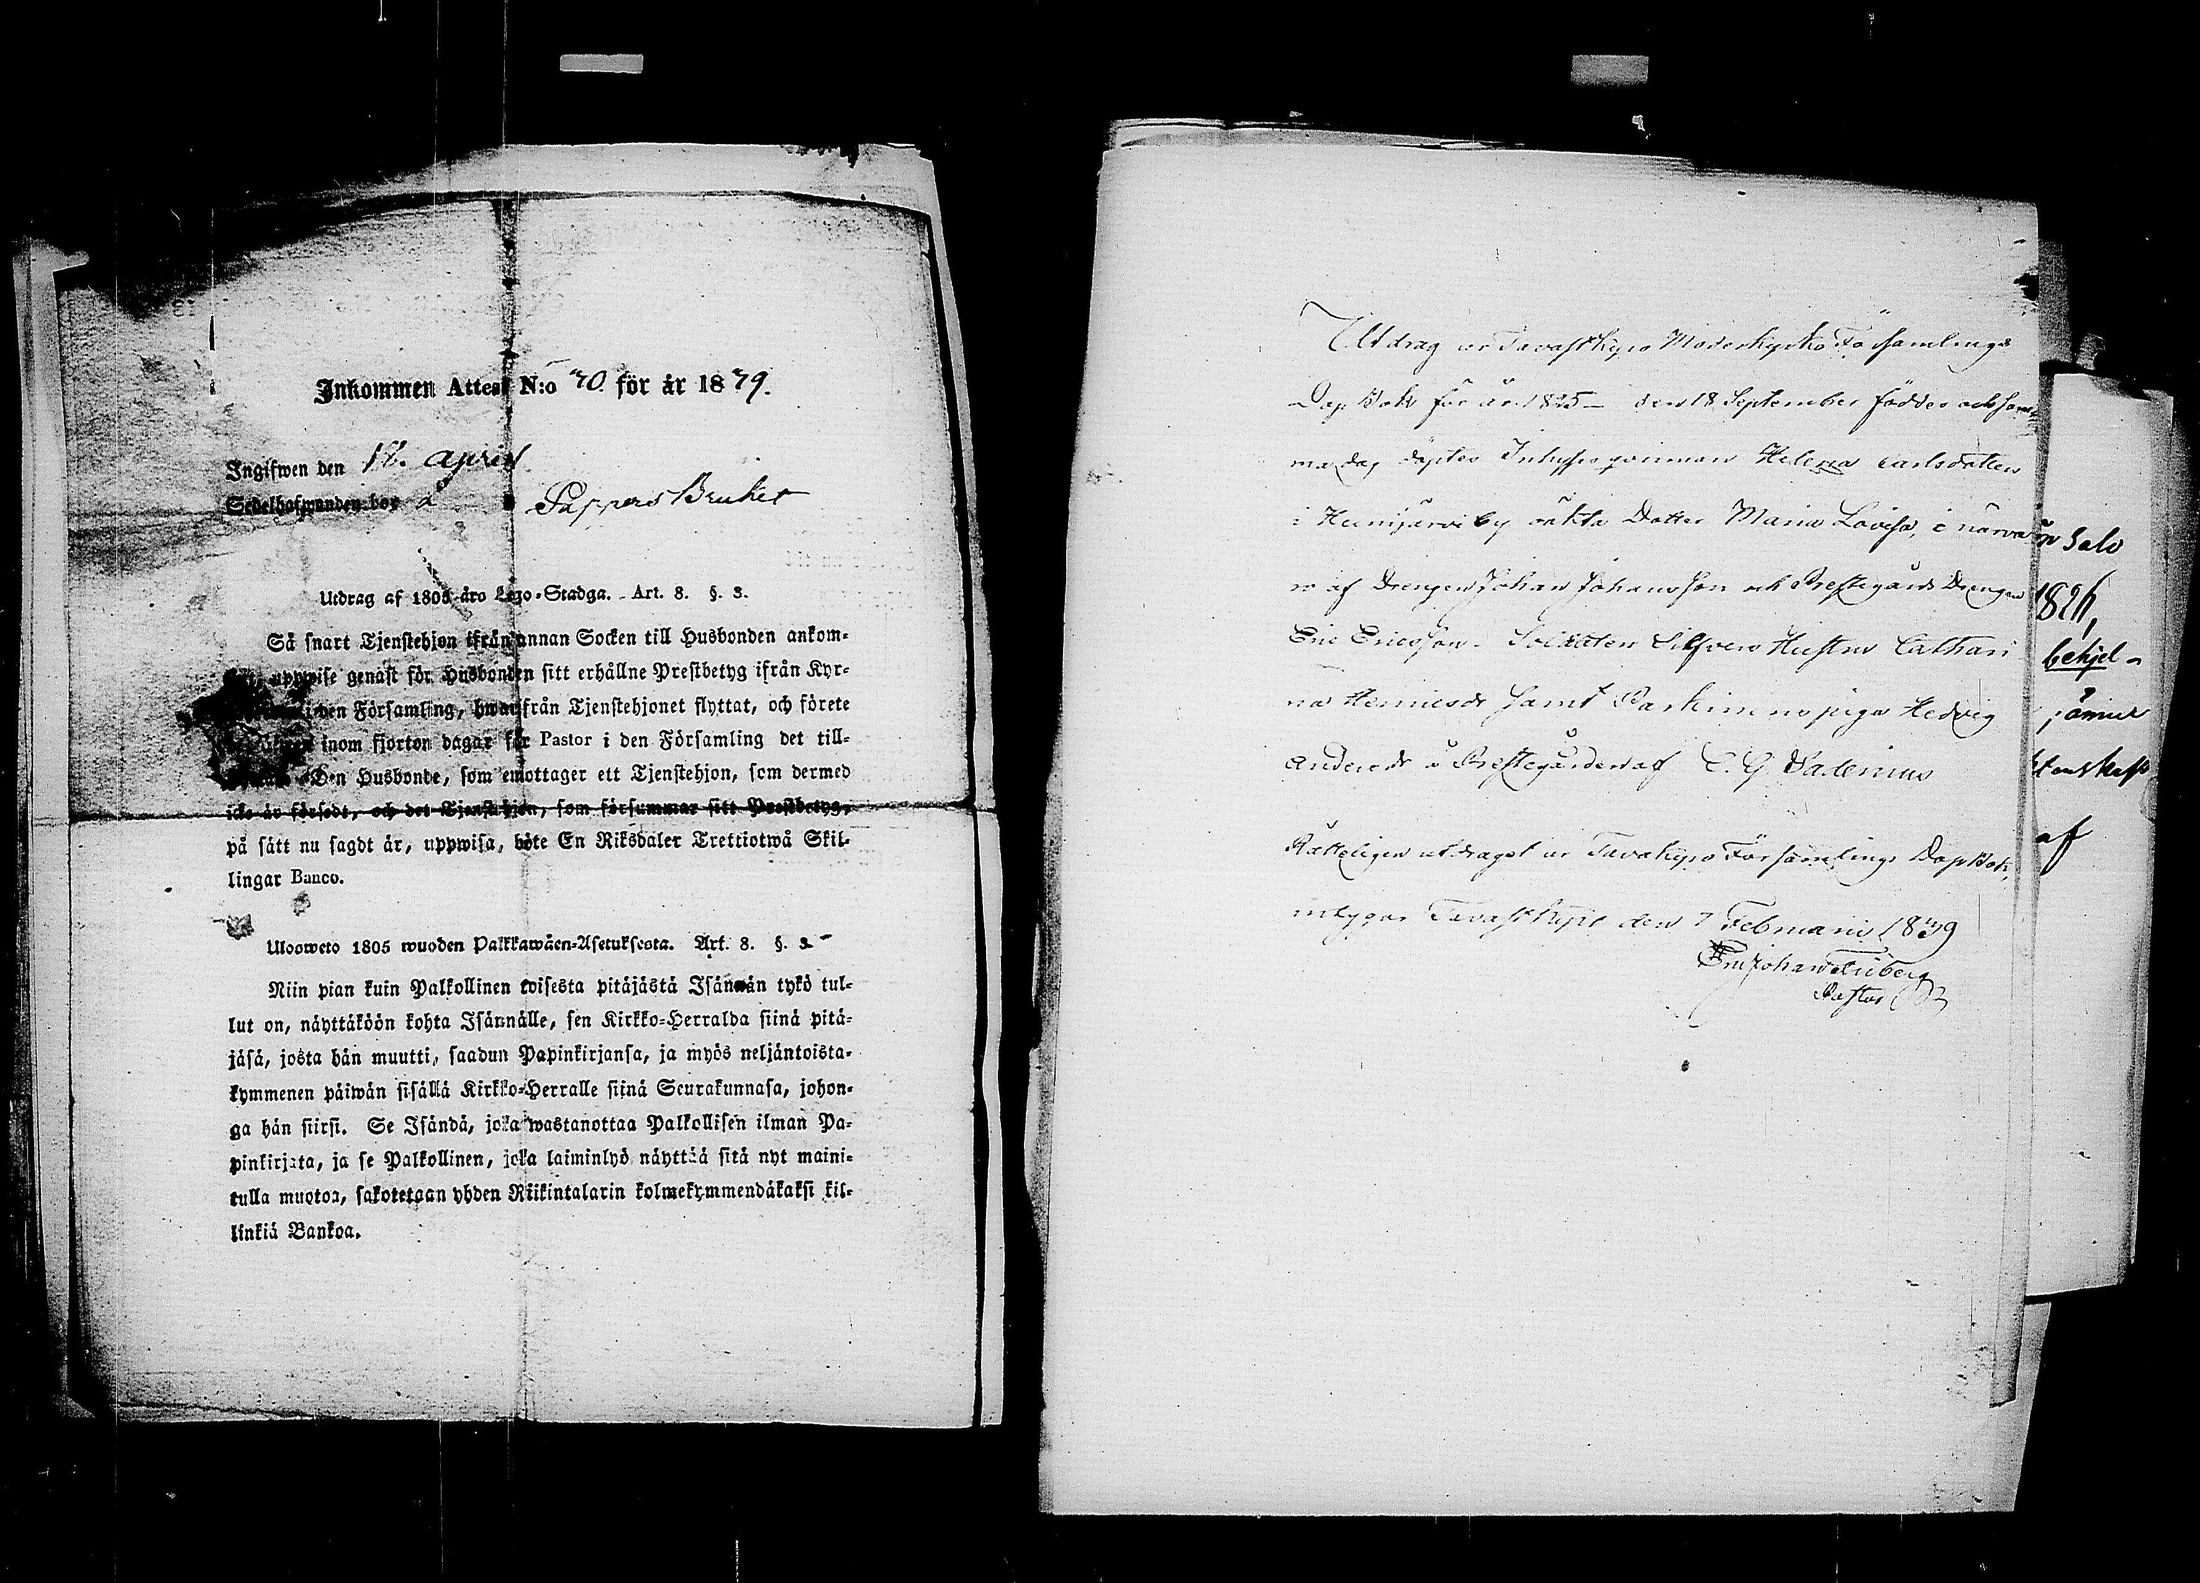 Inkommen Attest N:o 70 för år 1839.
Ingifwen den 18. april
Sedelhafwanden bor å Pappers Bruket
Utdrag af 1805 års Lego-Stadga. Art. 8. §. 3.
Så snart Tjenstehjon ifrån annan Socken till Husbonden ankom-
uppwise genast för Husbonden sitt erhållne Prestbetyg ifrån Kyr-
i den Församling, hwarifrån Tjenstehjonet flyttat, och förete
inom fjorton dagar för Pastor i den Församling det till-
Den Husbonde, som emottager ett Tjenstehjon, som dermed
icke är försedt, och det Tjenstehjon, som försummar sitt Prestbetyg,
på sätt nu sagdt är, uppwisa, böte En Riksdaler Trettiotwå Skil-
lingar Banco.
Ulosweto 1805 wuoden Palkkawäen-Asetuksesta. Art. 8. §. 3.
Niin pian kuin Palkollinen toisesta pitäjästä Isännän tykö tul-
lut on, näyttäköön kohta Isännälle, sen Kirkko-Herralda siinä pitä-
jäsä, josta hän muutti, saadun Papinkirjansa, ja myös neljäntoista-
kymmenen päiwän sisällä Kirkko-Herralle siinä Seurakunnasa, johon-
ga hän siirsi. Se Isändä, joka wastanottaa Palkollisen ilman Pa-
pinkirjata, ja se Palkollinen, joka laiminlyö näyttää sitä nyt maini-
tulla muotoa, sakotetaan yhden Riikintalarin kolmekymmendäkaksi kil-
linkiä Bankoa.
Utdrag ur Tavastkyro Moderkyrko Församlings
Dop Bok för år 1825 – den 18 September föddes och sam-
ma dag döptes Inhysesqvinnan Helena Carlsdotters
i Heinijärvi by oäkta Dotter Maria Lovisa, i närva
ro af Drengen Johan Johansson och Prestegårds Drengen
Eric Ericsson. Soldaten Silfvers Hustru Cathari
na Henricsdr samt Parkimus piga Hedvig
Andersdr å Prestegården af C. G. Vadenius
Rätteligen utdraget ur Tavakyro Församlings Dop Bok,
intygar Tavastkyro den 7 Februarii 1839
Eric Johan Friberg
Pastor
Salo
1826,
behjel-
af